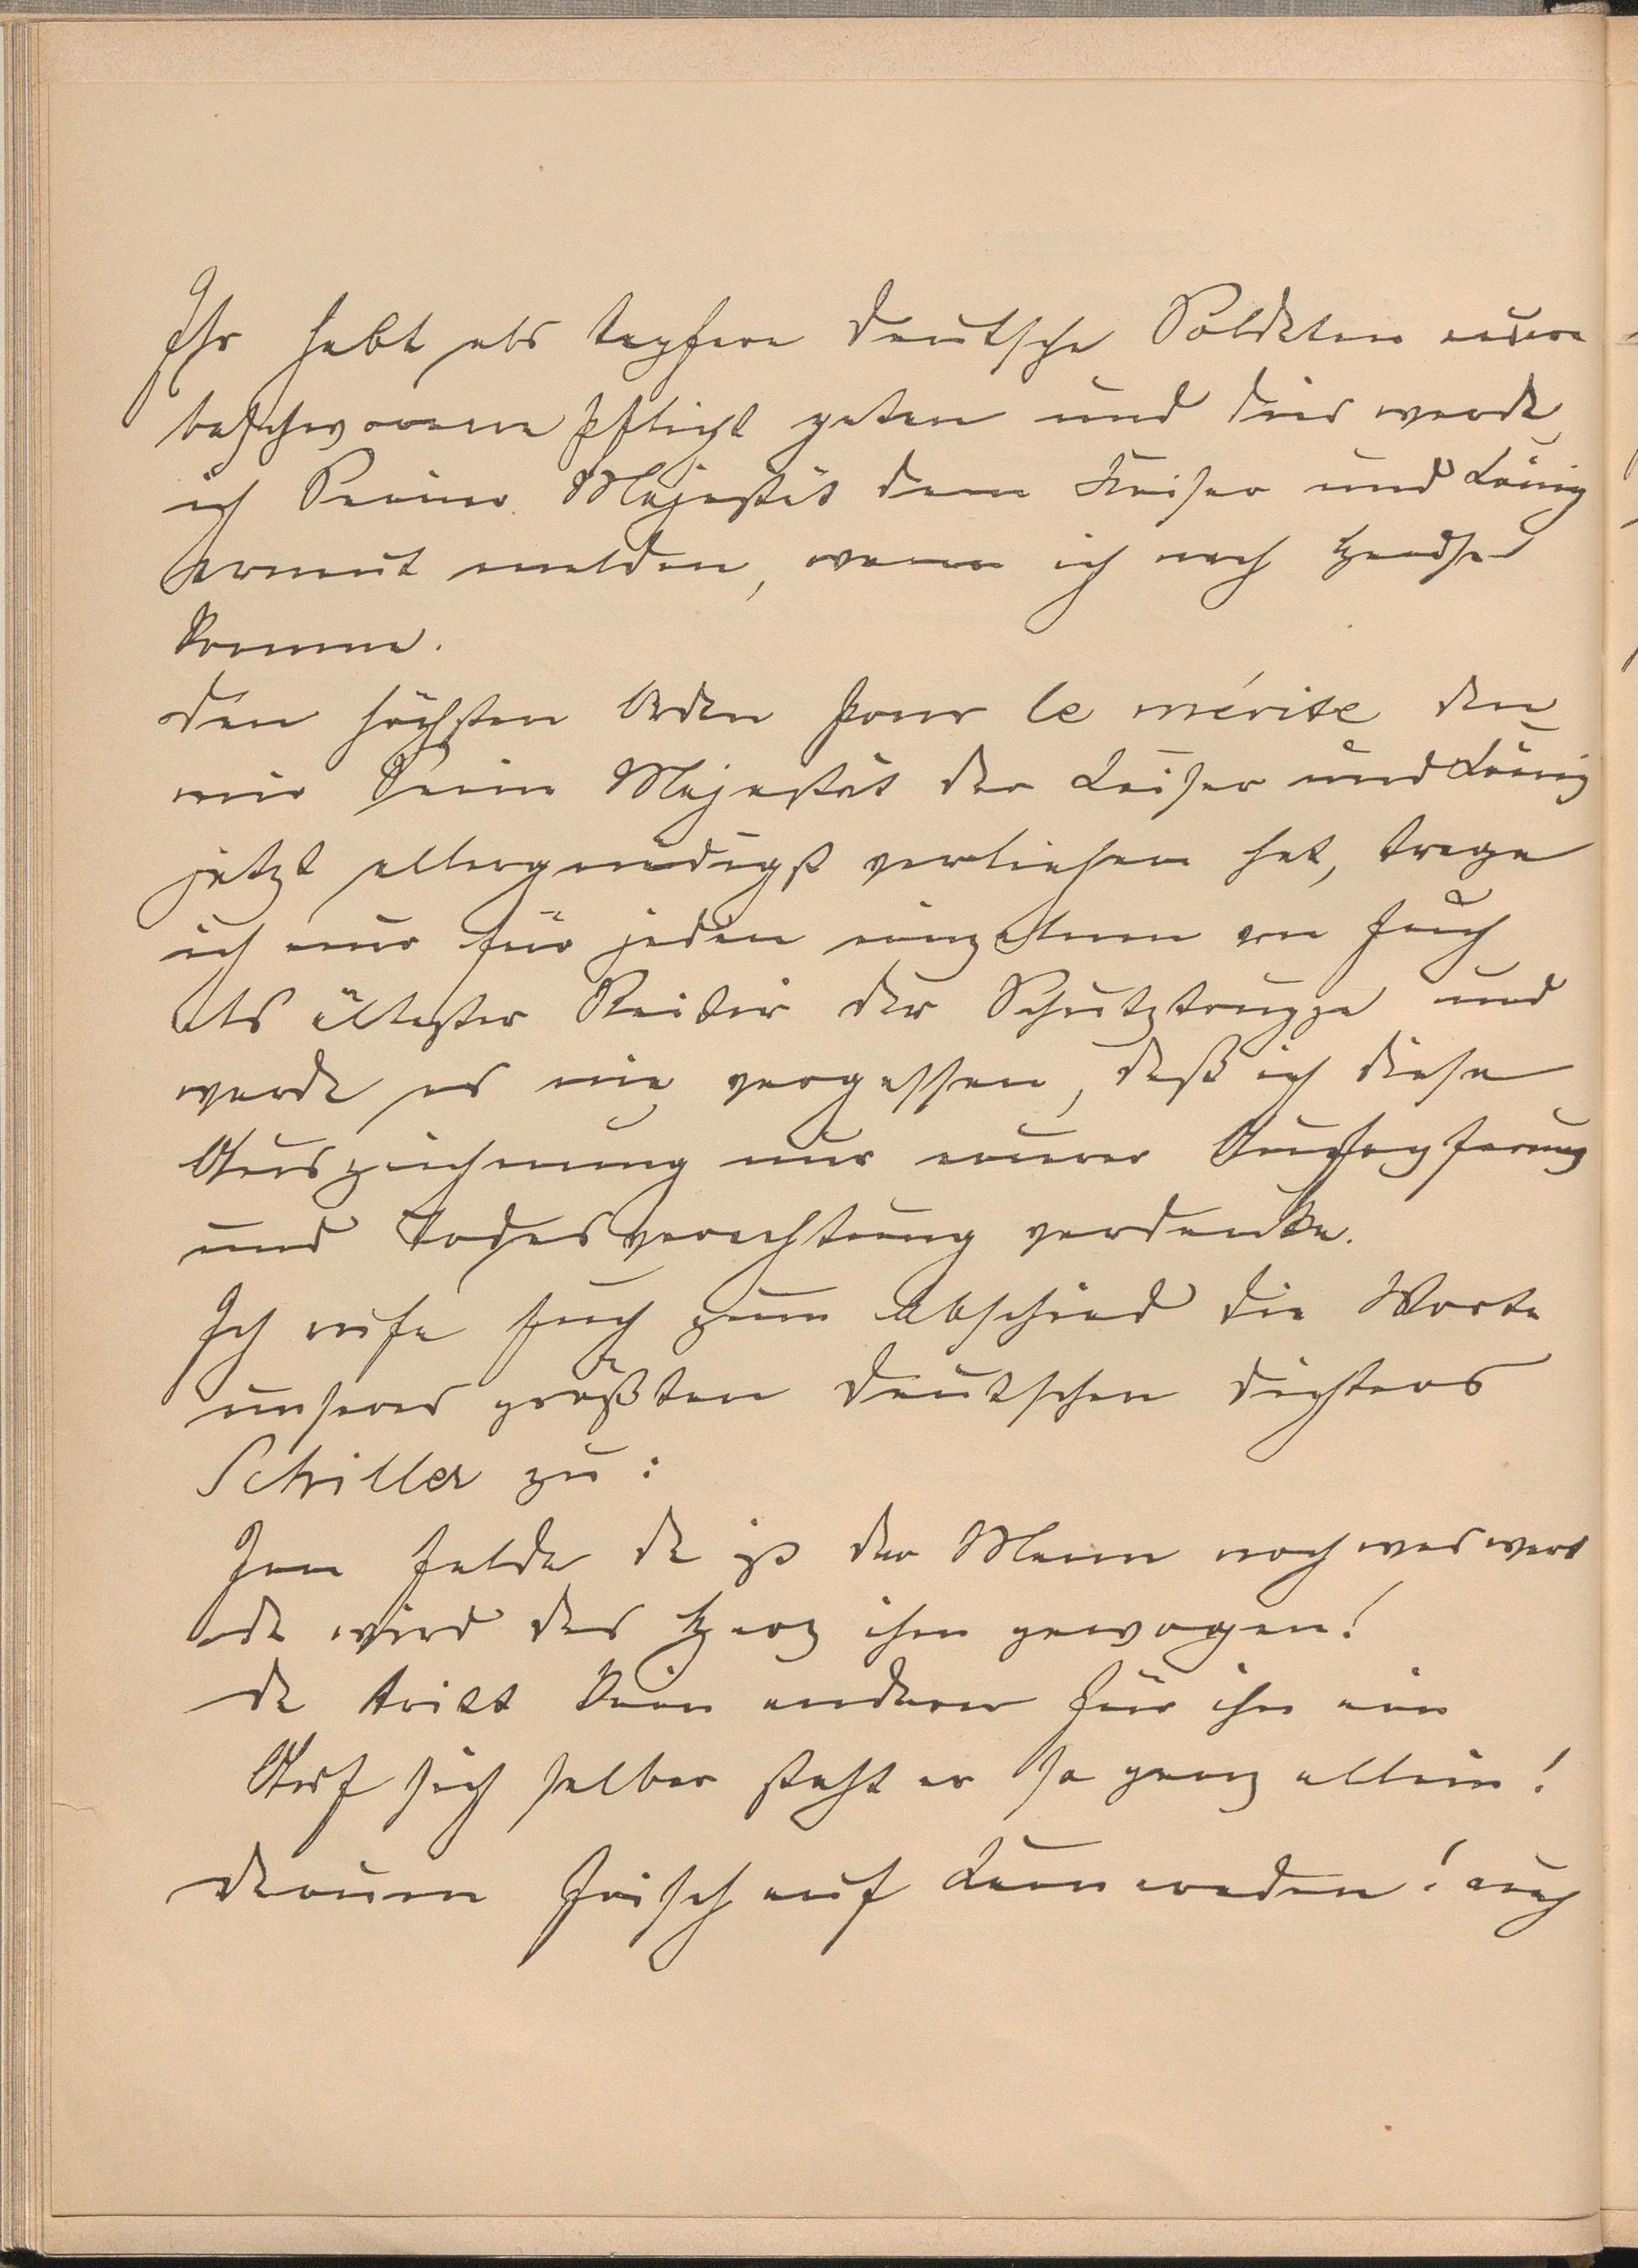 Ihr habt als tapfere deutsche Soldaten eure
beschworene Pflicht getan und dies werde
ich Seiner Majestät dem Kaiser und König
erneut melden, wenn ich nach Hause
komme.
Den höchsten Orden Pour le mérite den
mir Seine Majestät der Kaiser und König
jetzt allergnädigst verliehen hat, trage
ich nur für jeden einzelnen von Euch
als ältester Reiter der Schutztruppe und
werde es nie vergessen, daß ich diese
Auszeichnung nur eurer Aufopferung
und Todesverachtung verdanke.
Ich rufe Euch zum Abschied die Worte
unseres größten deutschen Dichters
Schiller zu:
Im Felde da ist der Mann noch was wert
da wird das Herz ihm gewogen!
da tritt kein anderer für ihn ein
Auf sich selber steht er da ganz allein!
Darum frisch auf Kameraden! auch